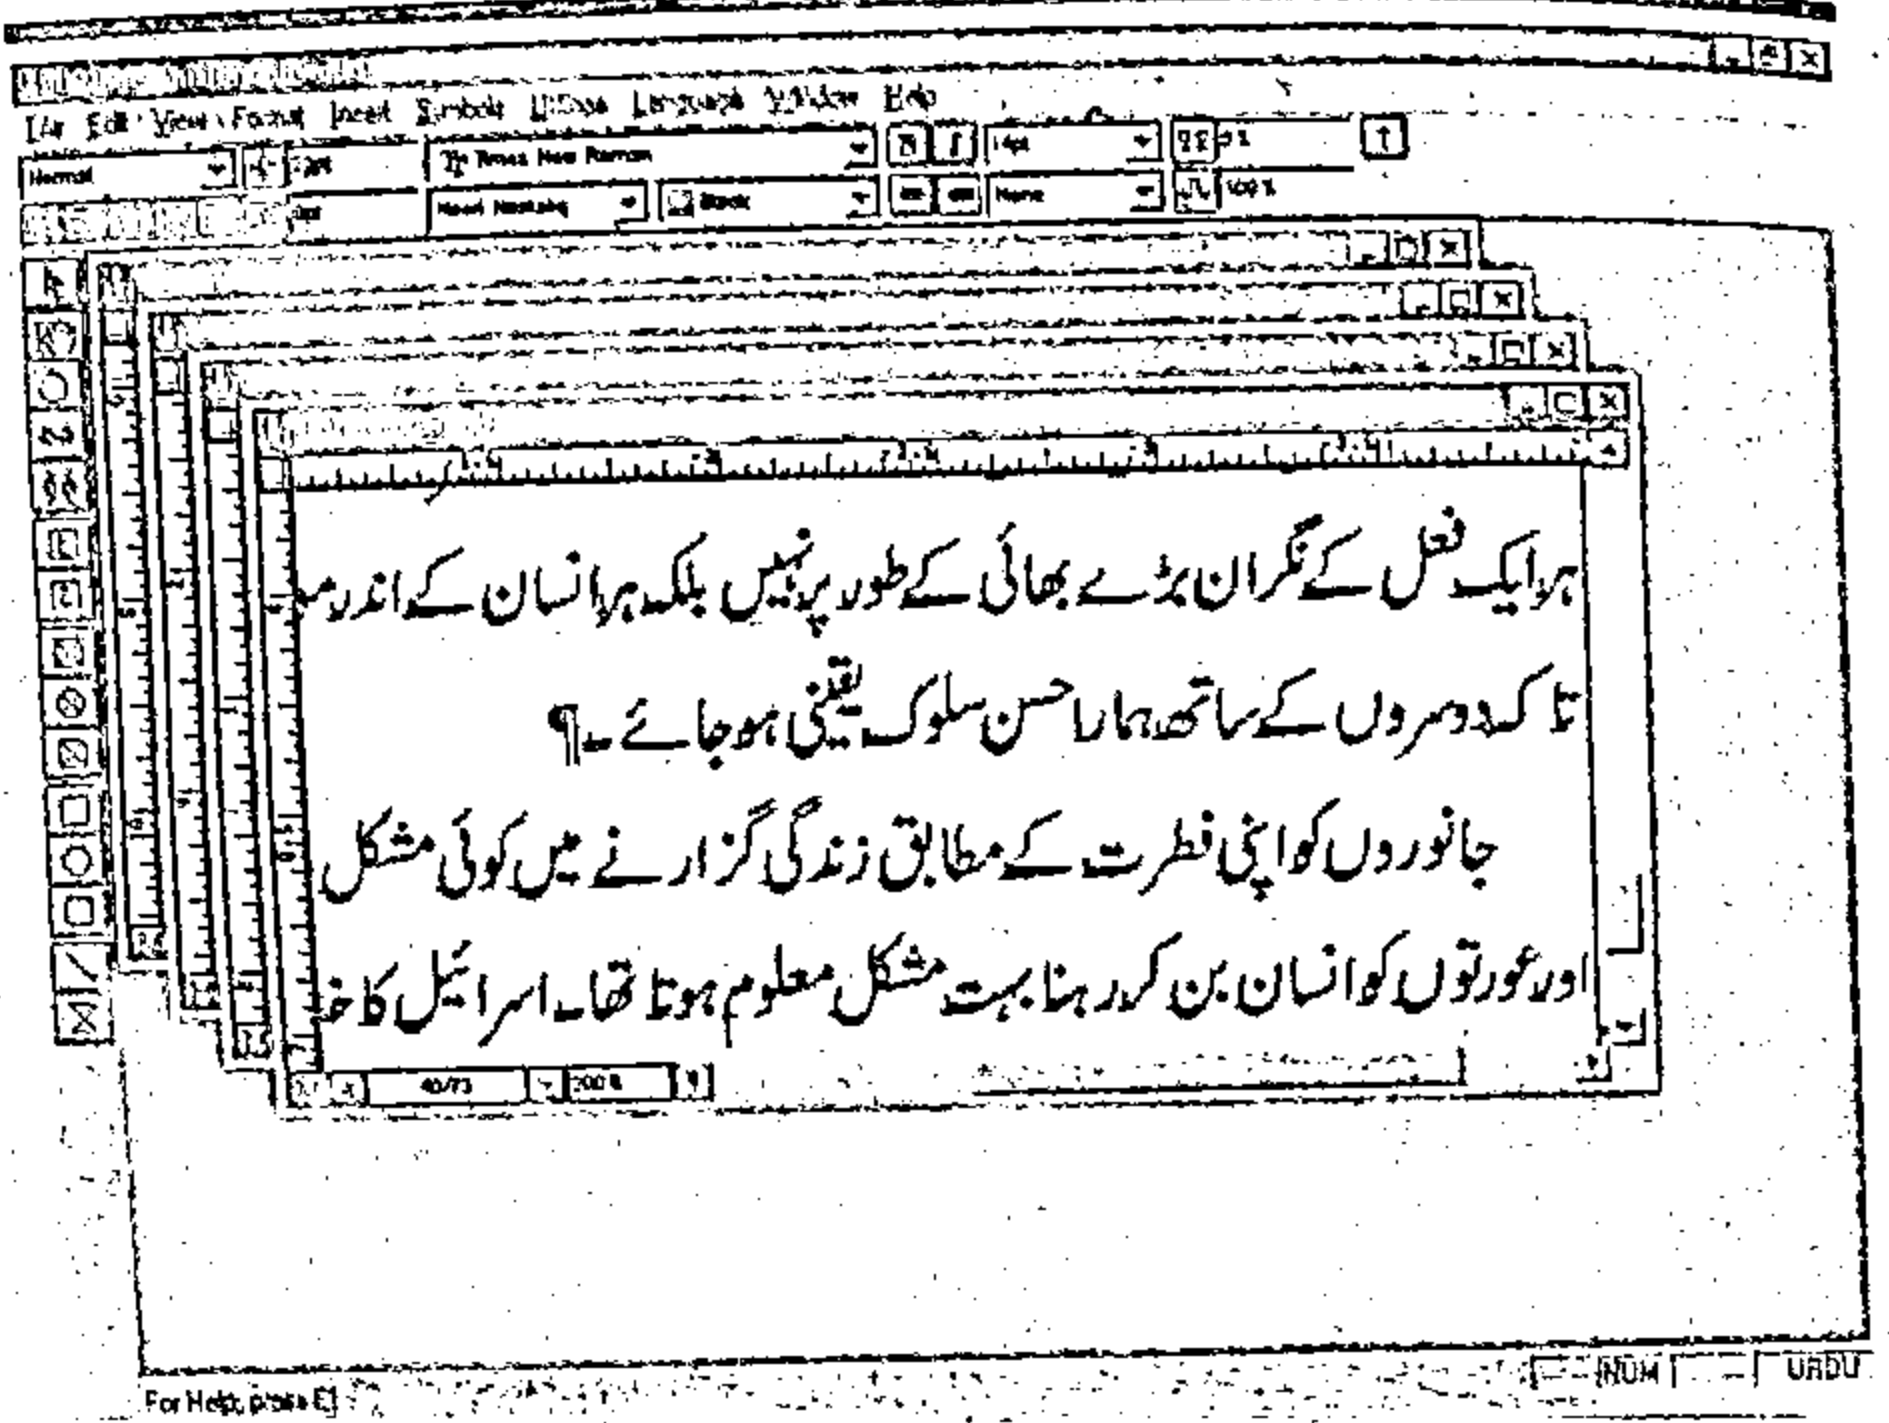 Edit View Format Insert Symbols Language Window Help
Normal Times New Roman B I 14pt
Noori Nastaliq Black None 100%
ہر ایک فعل کے نگران بڑے بھائی کے طور پر نہیں بلکہ ہر انسان کے اندر
تا کہ دوسروں کے ساتھ ہمارا حسن سلوک یقینی ہو جائے۔¶
جانوروں کو اپنی فطرت کے مطابق زندگی گزارنے میں کوئی مشکل
اور عورتوں کو انسان بن کر رہنا بہت مشکل معلوم ہوتا تھا۔ اسرائیل کا
40/73 200%
For Help, press F1 NUM URDU